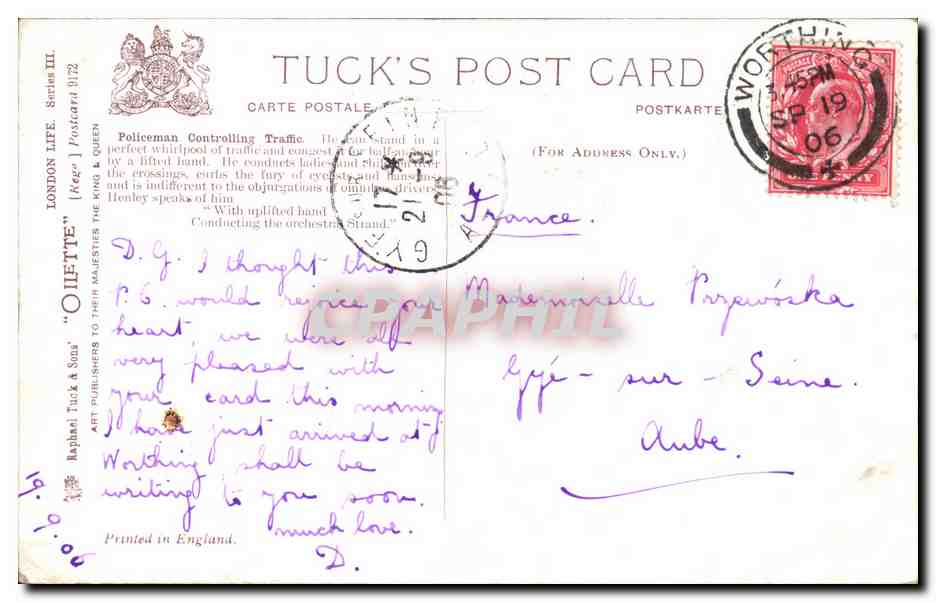 LONDON LIFE. Series III.
[Regd ] Postcard 9172
"OILETTE"
Raphael Tuck & Sons'
ART PUBLISHERS TO THEIR MAJESTIES THE KING & QUEEN
TUCK'S POST CARD
CARTE POSTALE
POSTKARTE
(FOR ADDRESS ONLY.)
Policeman Controlling Traffic. He can stand in a
perfect whirlpool of traffic and congest it for half-an-hour
by a lifted hand. He conducts ladies and children over
the crossings, curbs the fury of cyclists and hansoms
and is indifferent to the objurgations of omnibus drivers
Henley speaks of him
"With uplifted hand
Conducting the orchestral Strand."
WORTHING
.45PM
SP 19
06
17 *
21-9
06
GYE
France.
Mademoiselle Przewóska
Gyé-sur-Seine.
Aube.
D. G. I thought this
P.C. would rejoice your
heart, we were all
very pleased with
your card this morning
I have just arrived at
Worthing shall be
writing to you soon.
much love.
D.
19.9.06
Printed in England.
CPAPHIL